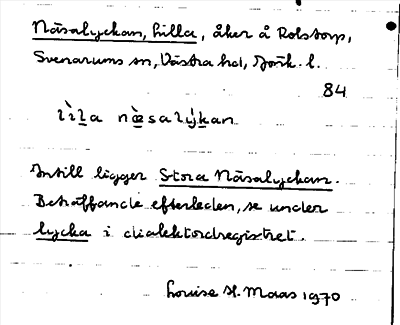 Näsalyckan, lilla, åker å Rolstorp,
Svenarums sn, Västra hd, Jönk. l.
84
lìla næsalýkan
Intill ligger Stora Näsalyckan.
Beträffande efterleden, se under
lycka i dialektordregistret.
Louise H. Maas 1970